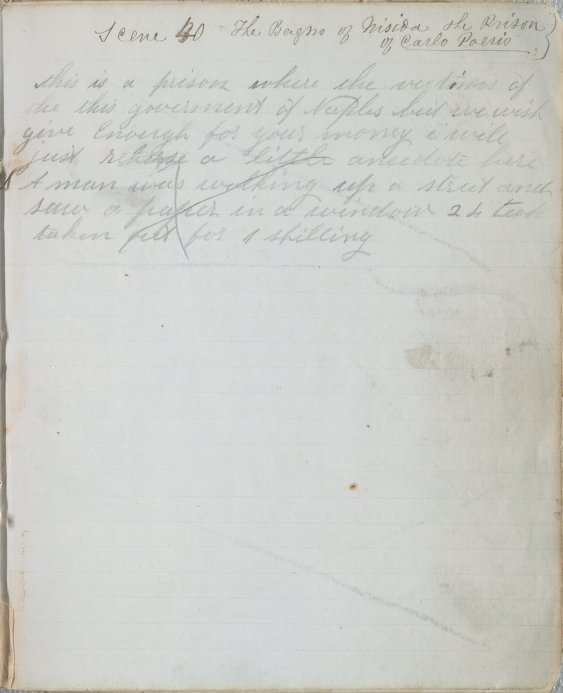 Scene 40 The Bagno of Nisida the Prison
of Carlo Poerio
this is a prison where the victims of
the this goverment of Naples but we wish
give Enough for your money i will
just reherse a little anecdote here
A man was walking up a street and
saw a paper in a window 24 teeth
taken out for 1 shilling